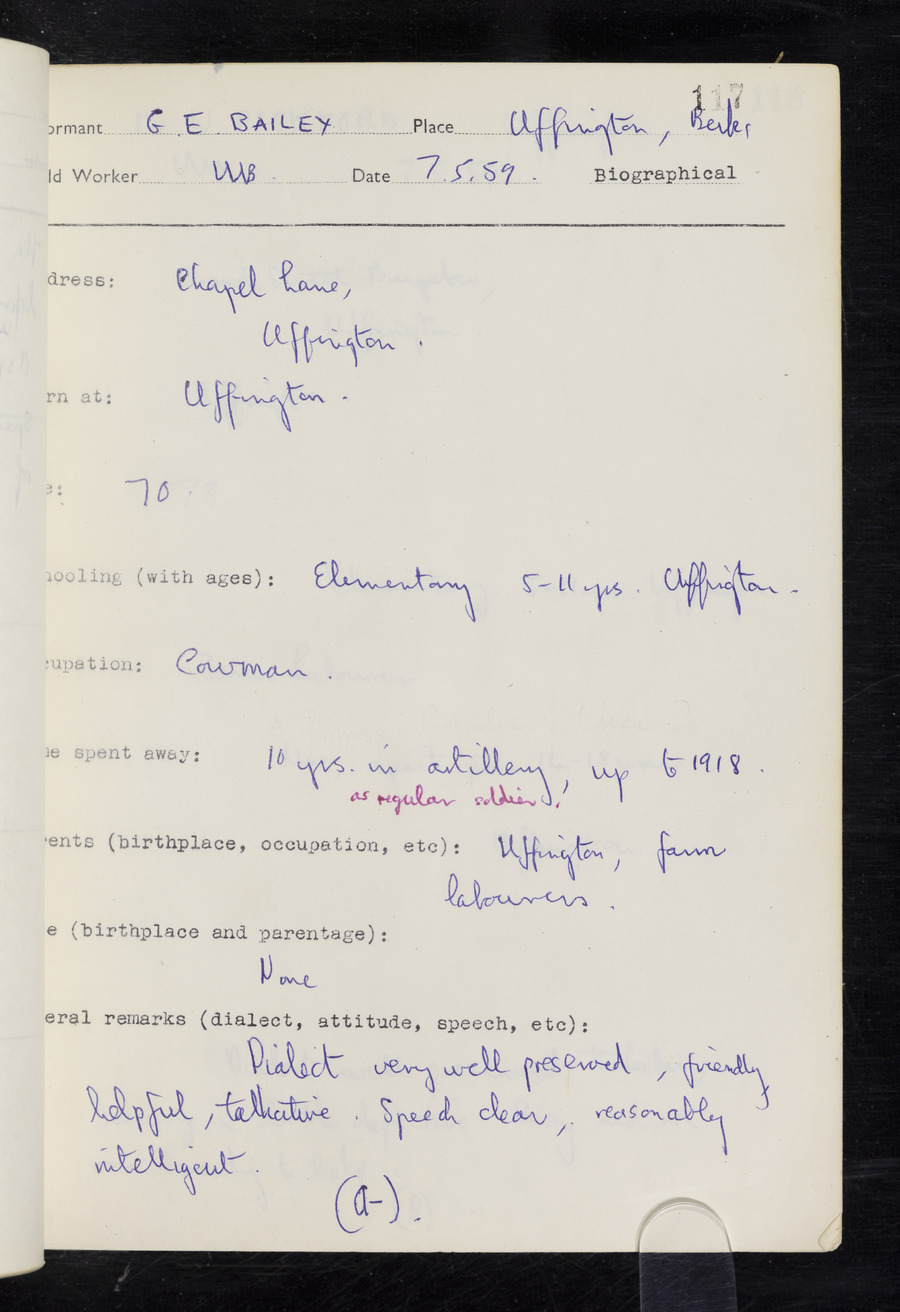 117
ormant G. E. BAILEY Place Uffington, Berks
ld Worker WB. Date 7.5.59. Biographical
dress: Chapel Lane,
Uffington.
rn at: Uffington.
e: 70
hooling (with ages): Elementary 5-11 yrs. Uffington.
cupation: Cowman.
me spent away: 10 yrs. in artillery, up to 1918.
as regular soldier.
rents (birthplace, occupation, etc): Uffington, farm
labourers.
e (birthplace and parentage):
None
eral remarks (dialect, attitude, speech, etc):
Dialect very well preserved, friendly,
helpful, talkative. Speech clear, reasonably
intelligent.
(A-).